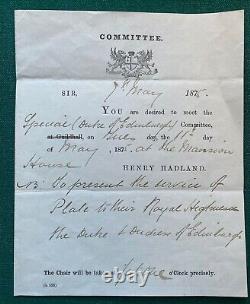 COMMITTEE.
SIR, 7th May 1875.
YOU are desired to meet the
Special (Duke of Edinburgh) Committee,
at Guildhall, on Tues day, the 11th day
of May, 1875, at the Mansion
House
HENRY HADLAND.
NB To present the service of
Plate to their Royal Highnesses
the Duke & Duchess of Edinburgh
The Chair will be taken at o'Clock precisely.